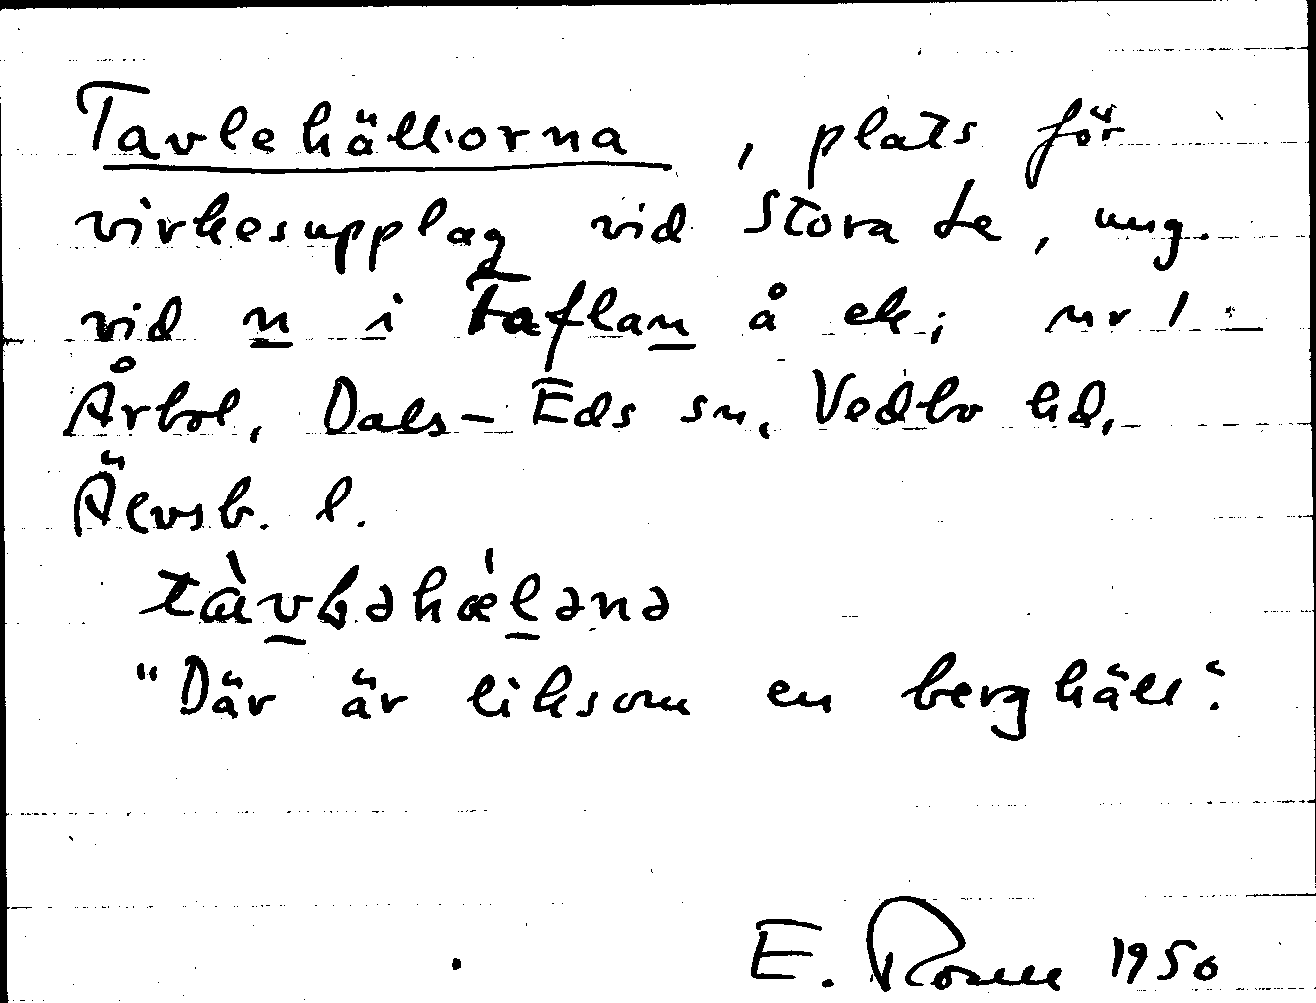 Tavlehällorna, plats för
virkesupplag vid Stora Le, ung.
vid n i Taflan å ek; nr 1
Årbol, Dals-Eds sn, Vedbo hd,
Älvsb. l.
tàvḷəhæ̀lənə
"Där är liksom en berghäll".
E. 1950